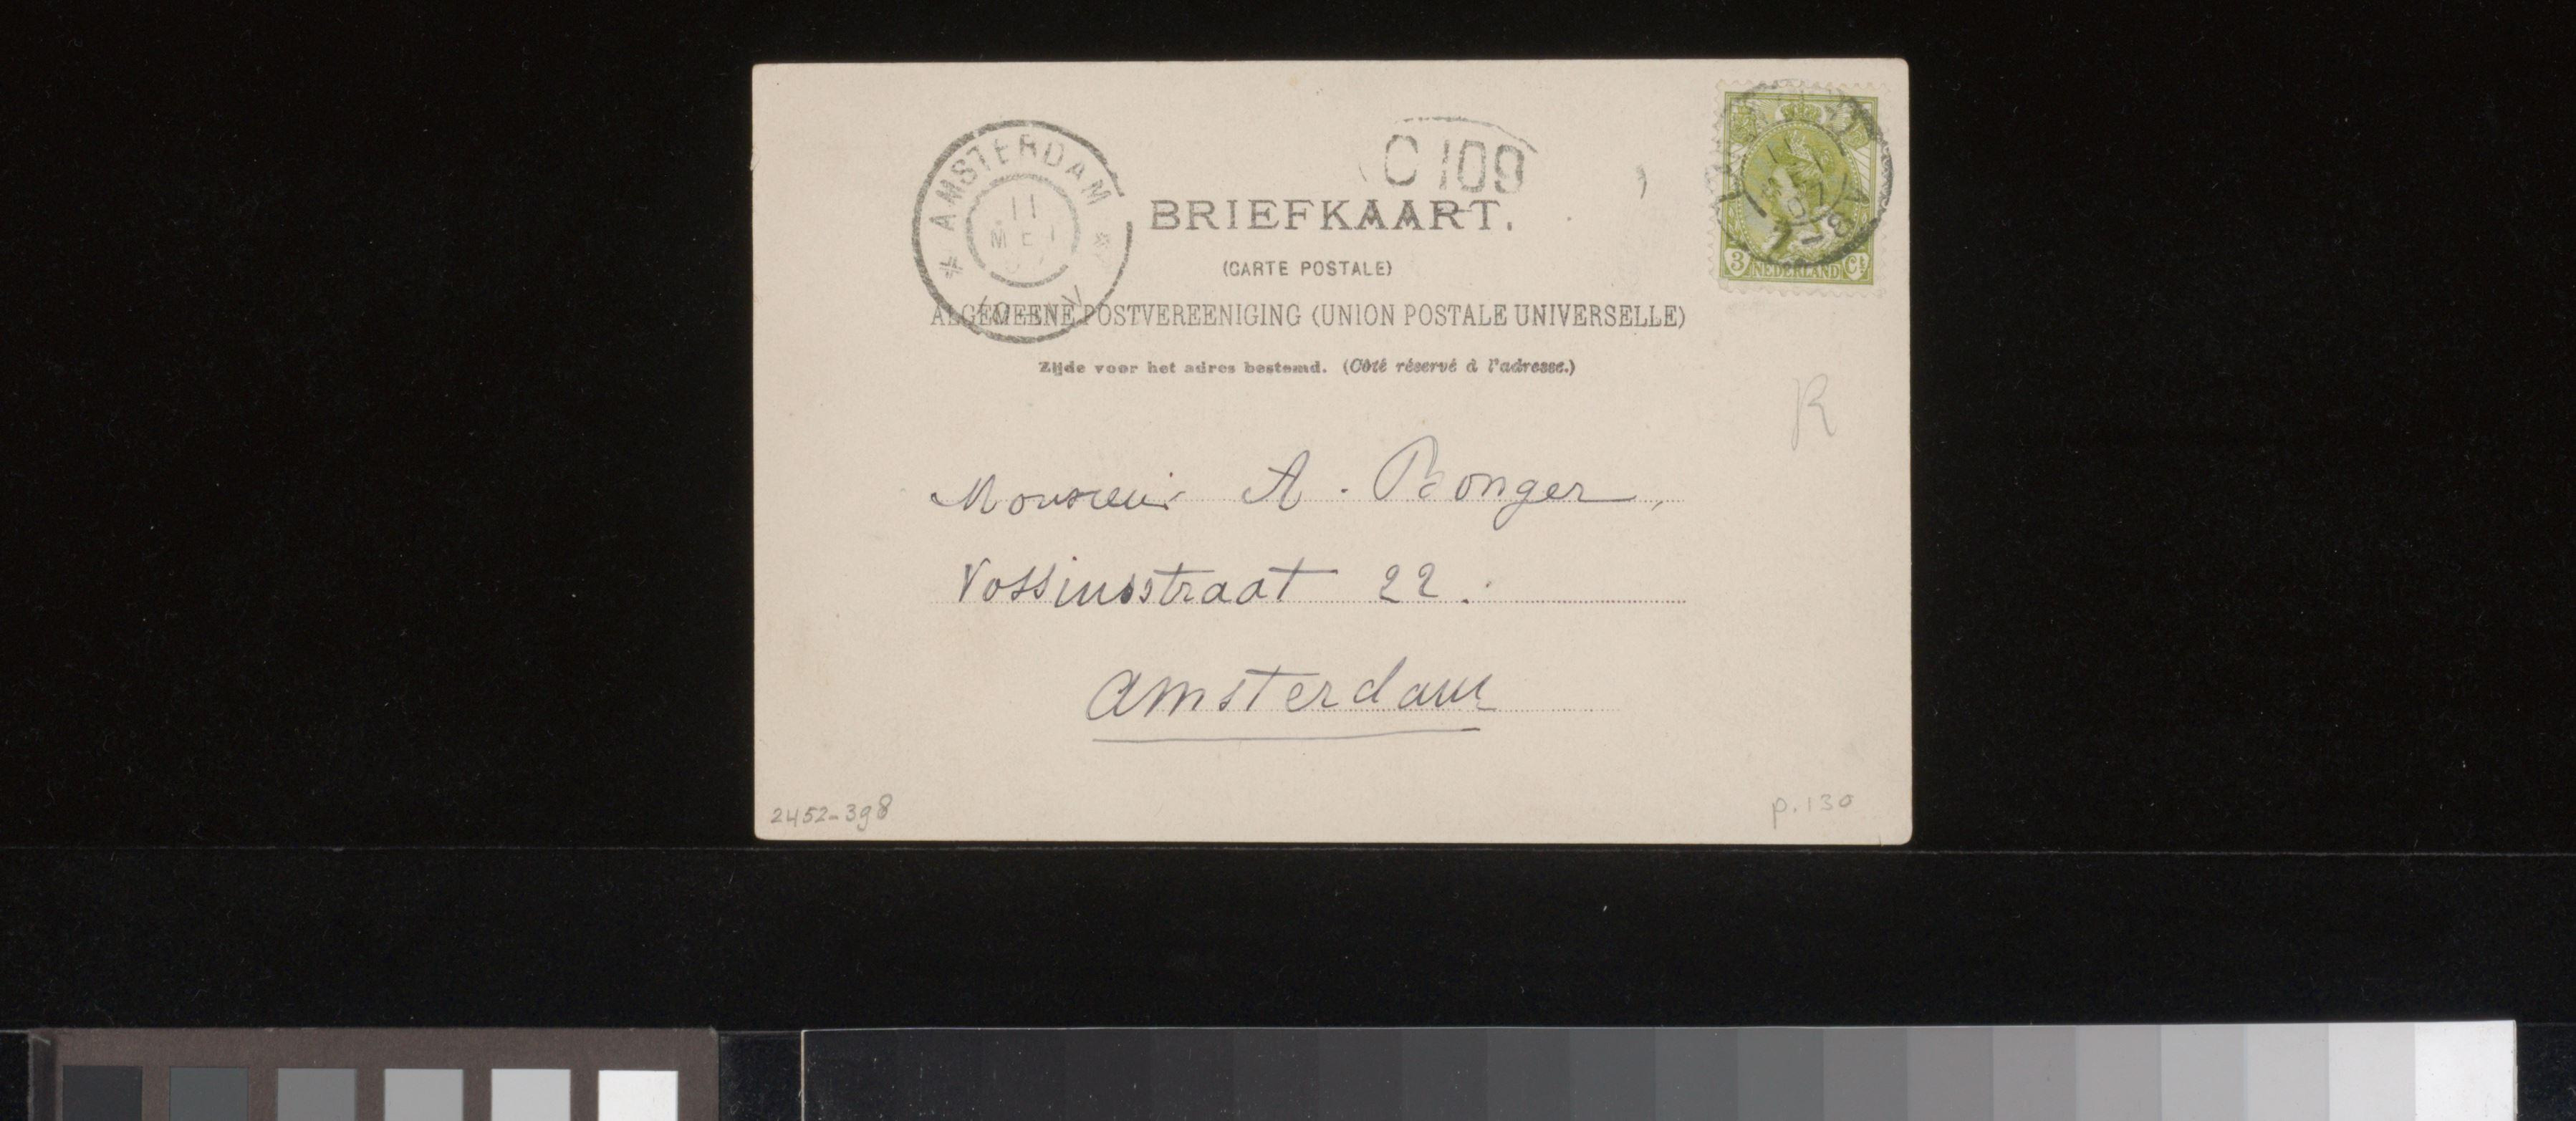 AMSTERDAM
11
MEI
C 109
BRIEFKAART.
(CARTE POSTALE)
ALGEMEENE POSTVEREENIGING (UNION POSTALE UNIVERSELLE)
Zijde voor het adres bestemd. (Côté réservé à l'adresse.)
3 NEDERLAND Ct
R
Monsieur A. Bonger,
Vossiusstraat 22.
Amsterdam
2452-398
p.130